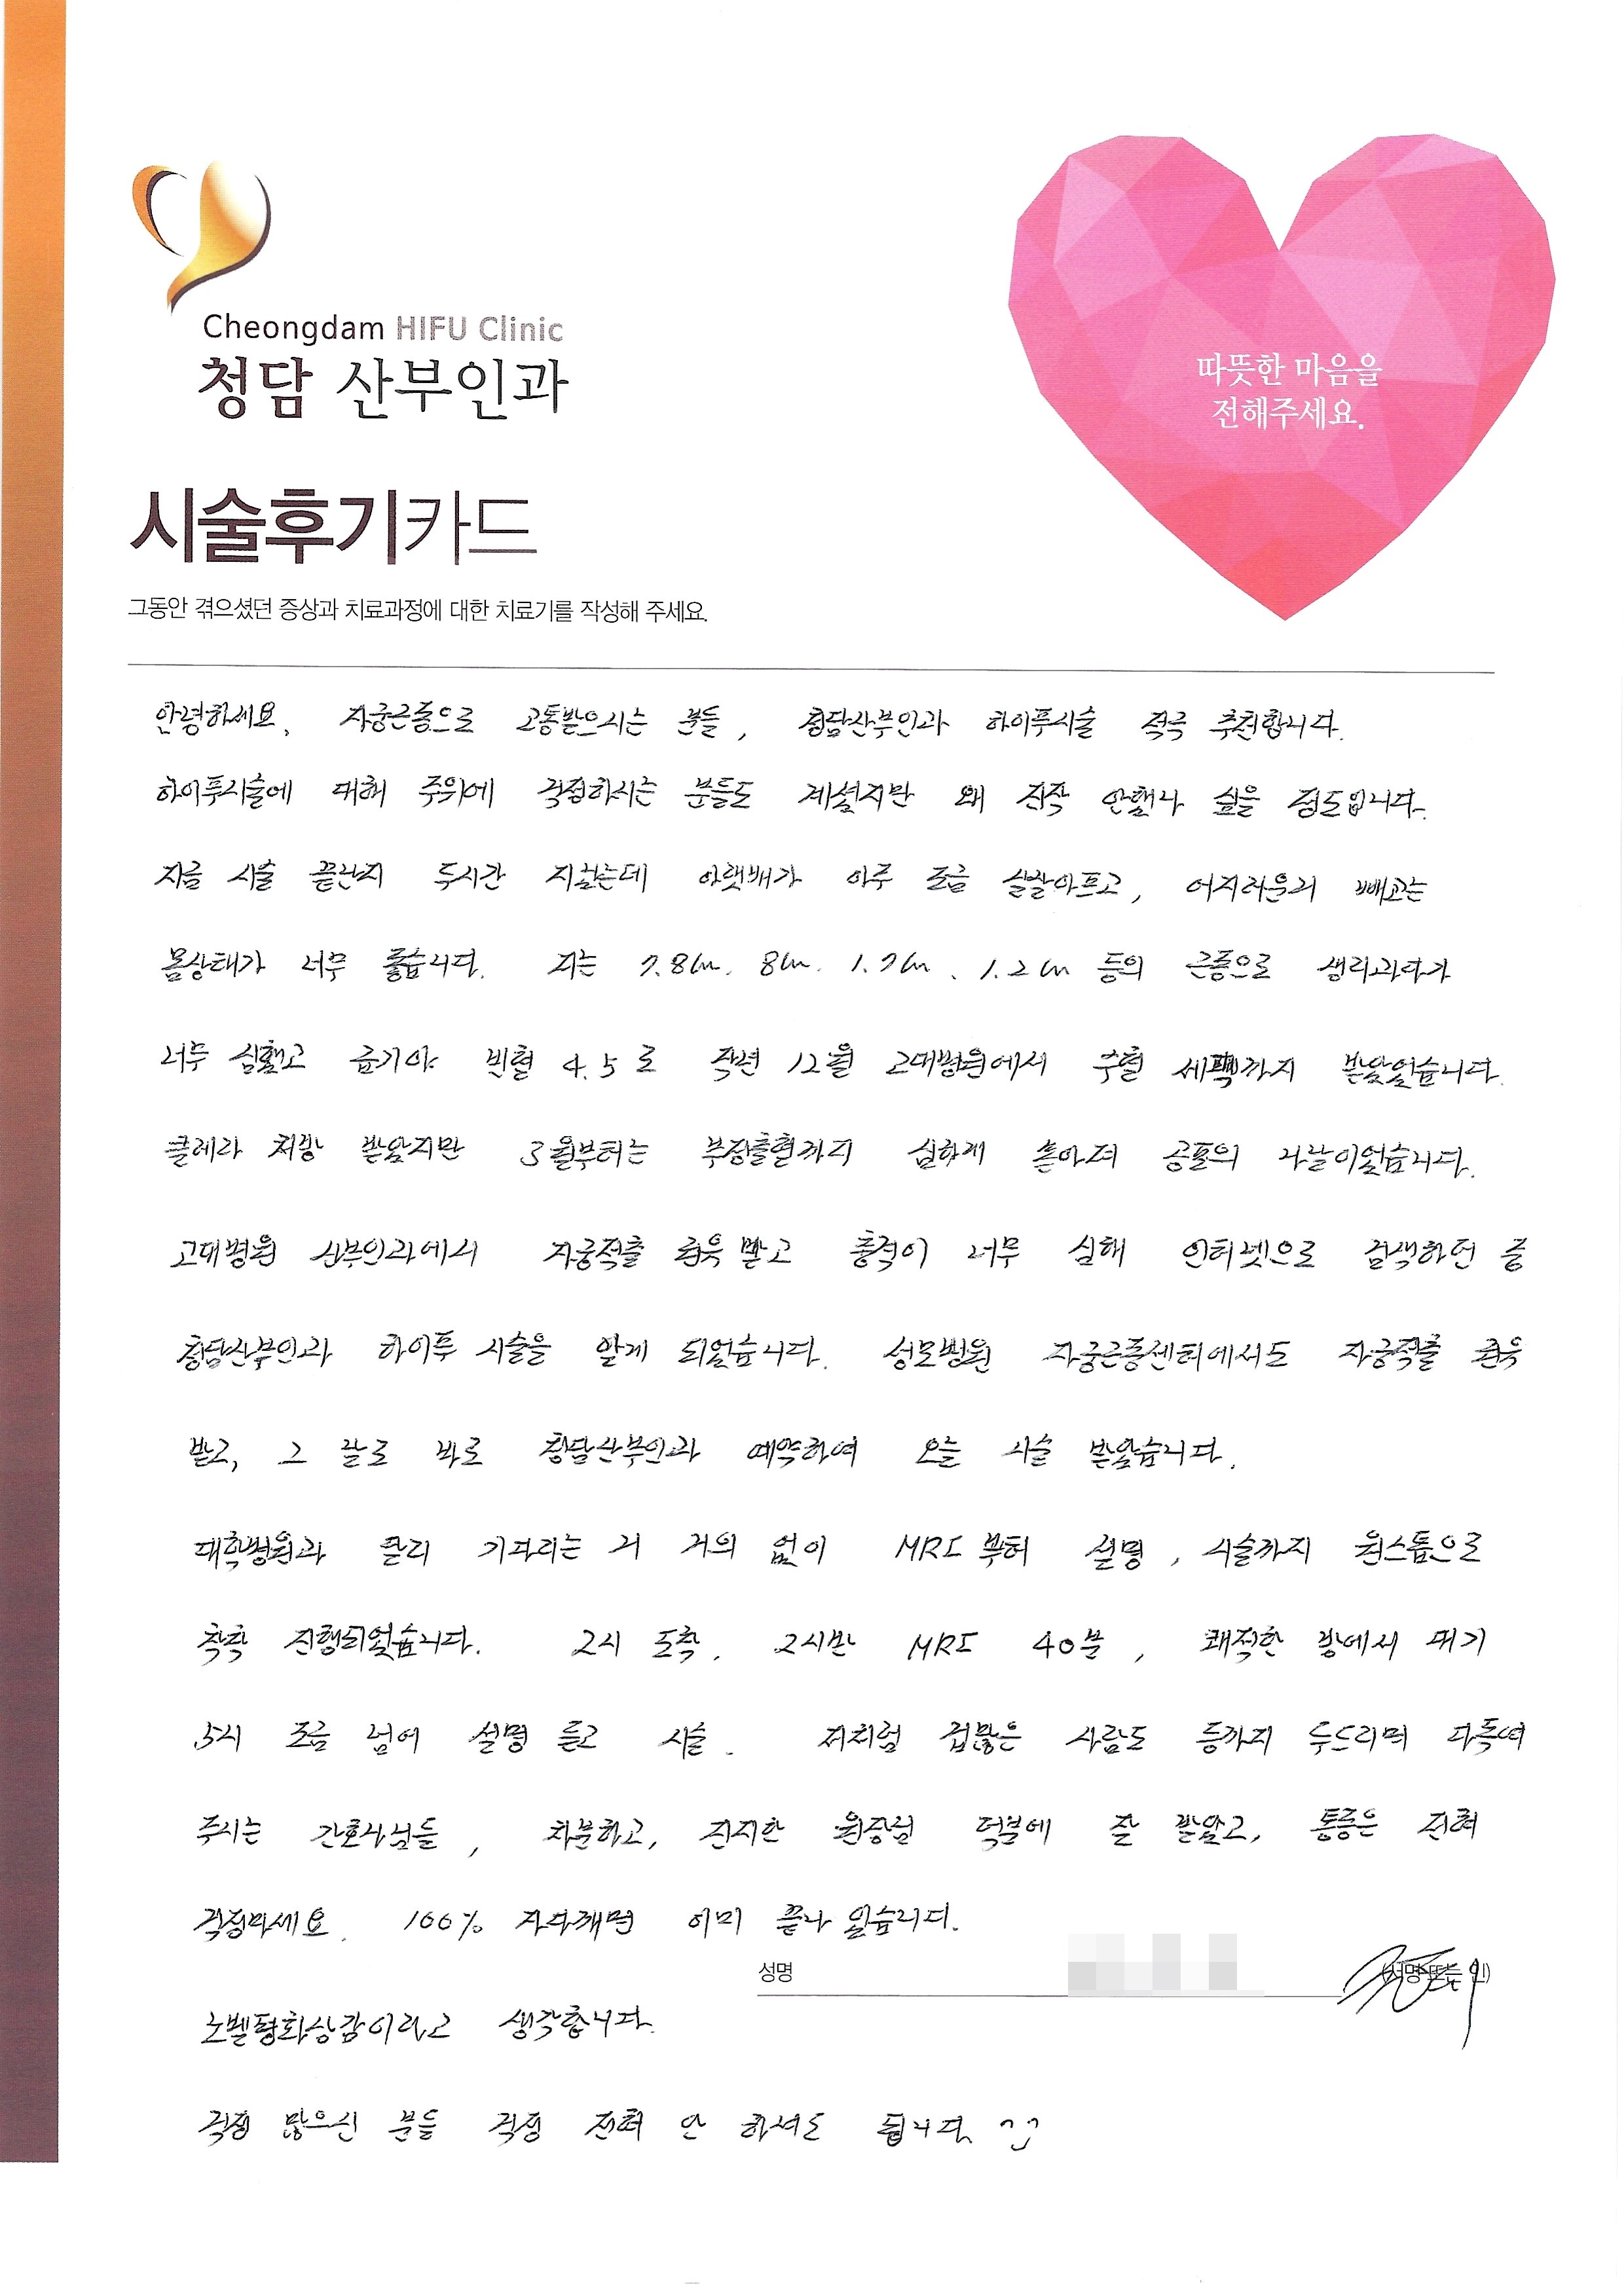 Cheongdam HIFU Clinic
청담 산부인과
따뜻한 마음을
전해주세요.
시술후기카드
그동안 겪으셨던 증상과 치료과정에 대한 치료기를 작성해 주세요.
안녕하세요. 자궁근종으로 고통받으시는 분들, 청담산부인과 하이푸시술 적극 추천합니다.
하이푸시술에 대해 주위에 걱정하시는 분들도 계셨지만 왜 진작 안했나 싶을 정도입니다.
지금 시술 끝난지 두시간 지났는데 아랫배가 아주 조금 살살아프고, 어지러운거 빼고는
몸상태가 너무 좋습니다. 저는 7.8cm. 8cm. 1.7cm. 1.2cm 등의 근종으로 생리과다가
너무 심했고 급기야 빈혈 4.5로 작년 12월 고대병원에서 수혈 세팩까지 받았었습니다.
클레라 처방 받았지만 3월부터는 부정출혈까지 심하게 쏟아져 공포의 나날이었습니다.
고대병원 산부인과에서 자궁적출 권유 받고 충격이 너무 심해 인터넷으로 검색하던 중
청담산부인과 하이푸 시술을 알게 되었습니다. 성모병원 자궁근종센터에서도 자궁적출 권유
받고, 그 길로 바로 청담산부인과 예약하여 오늘 시술 받았습니다.
대학병원과 달리 기다리는 거 거의 없이 MRI부터 설명, 시술까지 원스톱으로
착착 진행되었습니다. 2시 도착, 2시반 MRI 40분, 쾌적한 방에서 대기
5시 조금 넘어 설명 듣고 시술. 저처럼 겁많은 사람도 등까지 두드리며 다독여
주시는 간호사님들, 차분하고, 진지한 원장님 덕분에 잘 받았고, 통증은 전혀
걱정마세요. 100% 자다깨면 이미 끝나 있습니다.
성명 (서명 또는 인)
노벨평화상감이라고 생각합니다.
걱정 많으신 분들 걱정 전혀 안 하셔도 됩니다. ^^